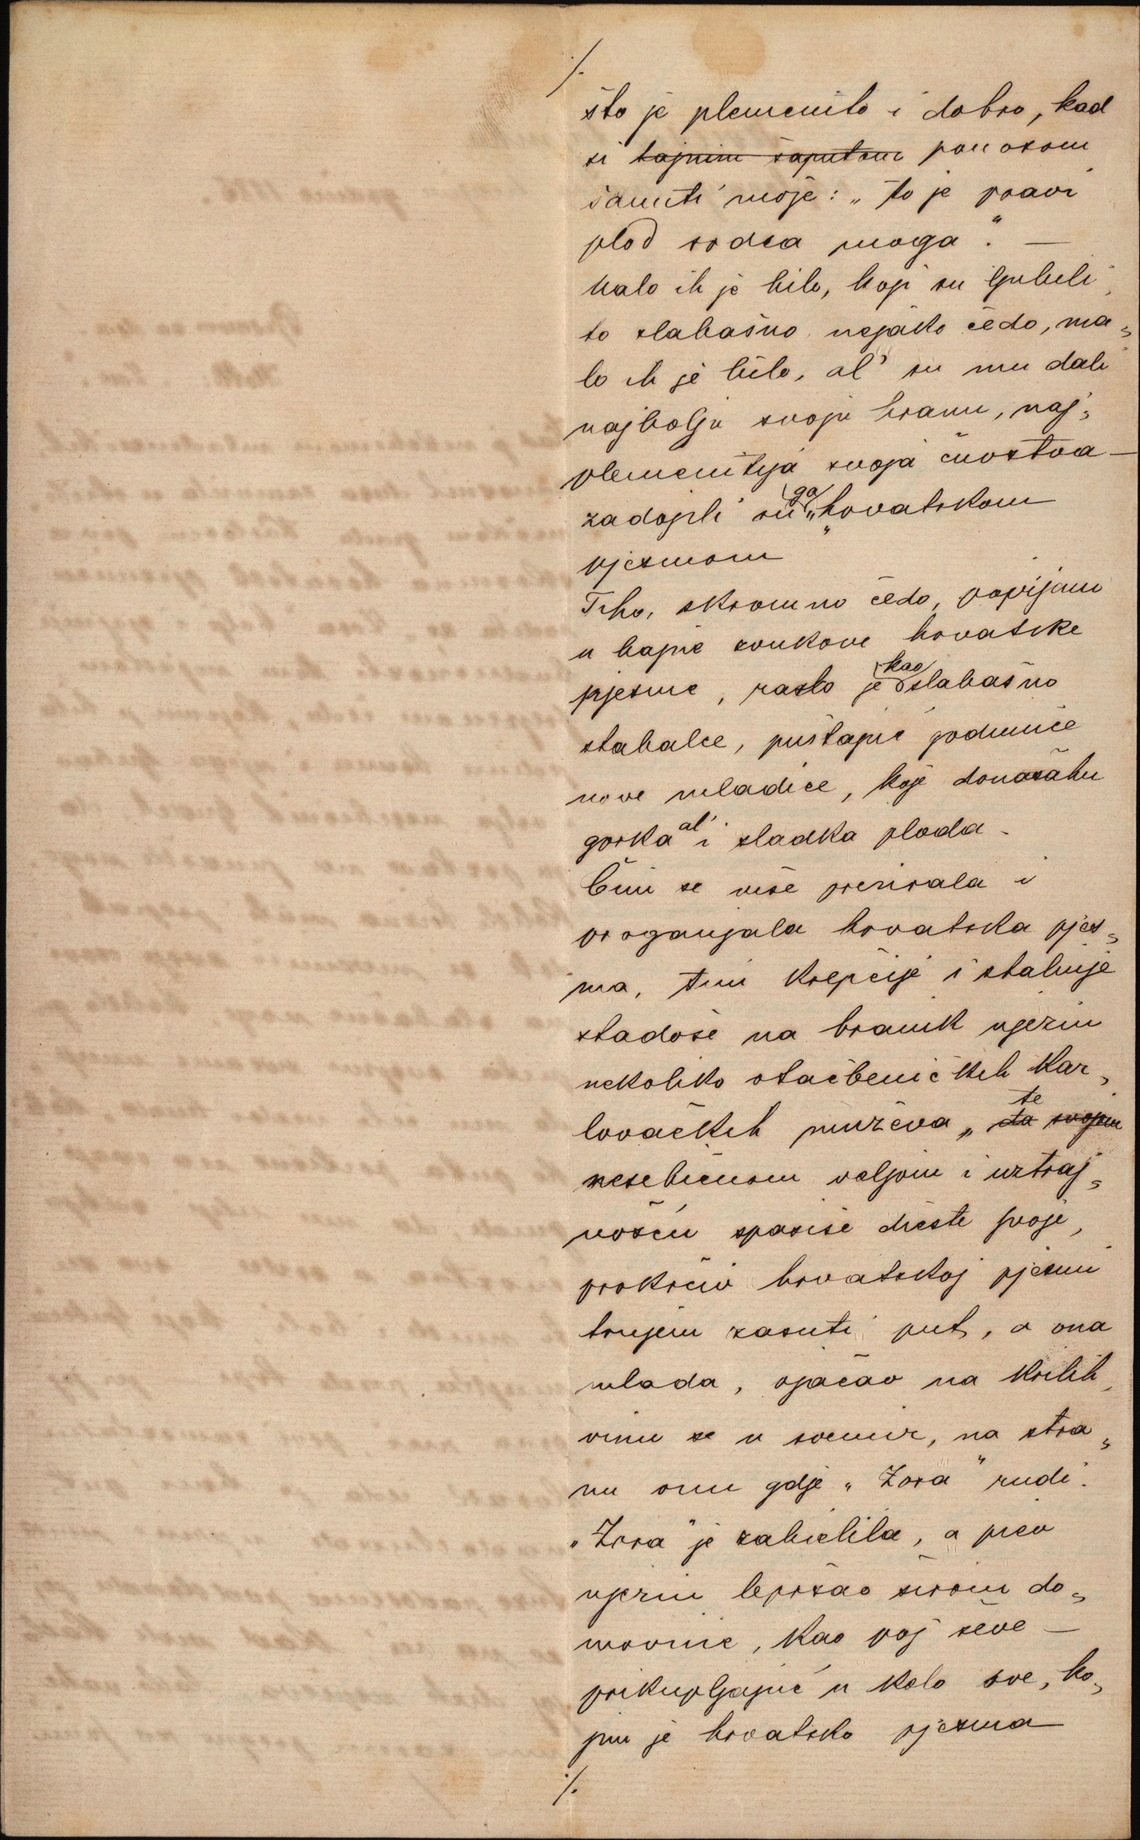 ./.
što je plemenito i dobro, kad
si tajnim šaputom ponosom
šanuti može: „to je pravi
plod srdca moga“. —
Malo ih je bilo, koji su ljubili
to slabašno nejako čedo, ma„
lo ih je bilo, al' su mu dali
najbolju svoju hranu, naj„
plemenitija svoja čuvstva —
zadojili su ga „hrvatskom
pjesmom“
Tiho, skromno čedo, popijam
u hapić zvukove hrvatske
pjesme, raslo je kao slabašno
stabalce, puštajuć godimice
nove mladice, koje donašahu
gorka al' i sladka ploda -
Čim se više prezirala i
proganjala hrvatska pjes„
ma, tim krepčije i stalnije
stadoše na branik njezin
nekoliko otačbeničkih kar„
lovačkih muževa, da svojim te
nesebičnom voljom i uztraj„
nošću spasiše dieste svoje,
prokrčiv hrvatskoj pjesmi
trnjem zasuti put, a ona
mlada, ojačav na krilih,
vinu se u svemir, na stra„
nu onu gdje „Zora“ rudi.
„Zora“ je zabielila, a pjev
njezin lepršao širom do„
movine, kao poj ševe —
prikupljajuć u kolo sve, ko„
jim je hrvatska pjesma
./.